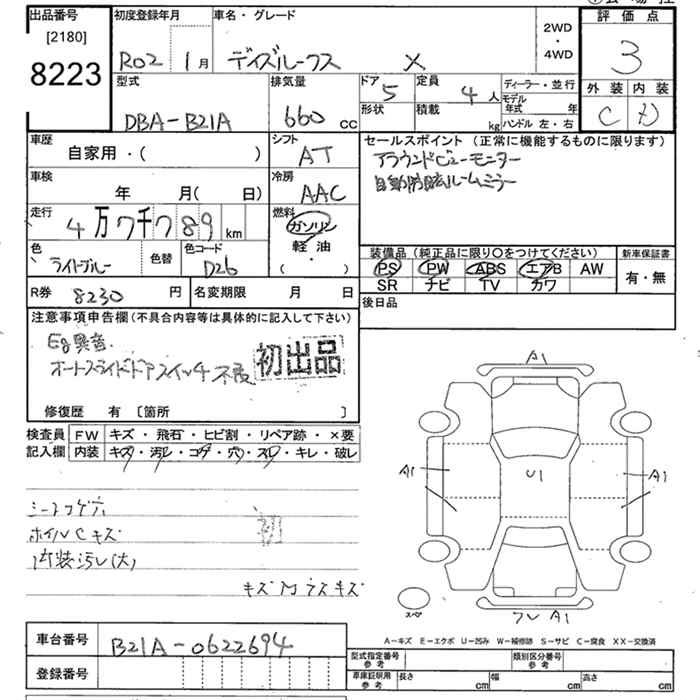 出品番号
[2180]
8223
初度登録年月
R02 1月
車名・グレード
デイズルークス X
2WD
・
4WD
評価点
3
外装 内装
C D
型式
DBA-B21A
排気量
660 CC
ドア
5
定員
4人
形状
積載
kg
ディーラー・並行
モデル年式 年
ハンドル 左・右
車歴
自家用・( )
シフト
AT
セールスポイント(正常に機能するものに限ります)
アラウンドビューモニター
自動防眩ルームミラー
車検
年 月( 日)
冷房
AAC
走行
4万7千789km
燃料
ガソリン
軽油
( ・ )
色
ライトブルー
色替
色コード
D26
装備品(純正品に限り〇をつけてください)
PS PW ABS エアB AW
SR ナビ TV カワ
新車保証書
有・無
R券 8230円
名変期限 月 日
後日品
注意事項申告欄(不具合内容等は具体的に記入して下さい)
Eg異音
オートスライドドアスイッチ不良
初出品
修復歴 有 [箇所 ]
検査員記入欄
FW キズ・飛石・ヒビ割・リペア跡・×要
内装 キズ・汚レ・コゲ・穴・スレ・キレ・破レ
シートコゲ穴
ホイルCキズ
内装汚レ(大)
初
A1
A1
U1
A1
A1
スペ
A-キズ E-エクボ U-凹み W-補修跡 S-サビ C-腐食 XX-交換済
車台番号
B21A-0622694
登録番号
型式指定番号
参考
類別区分番号
参考
車庫証明用
参考
長さ cm
幅 cm
高さ cm